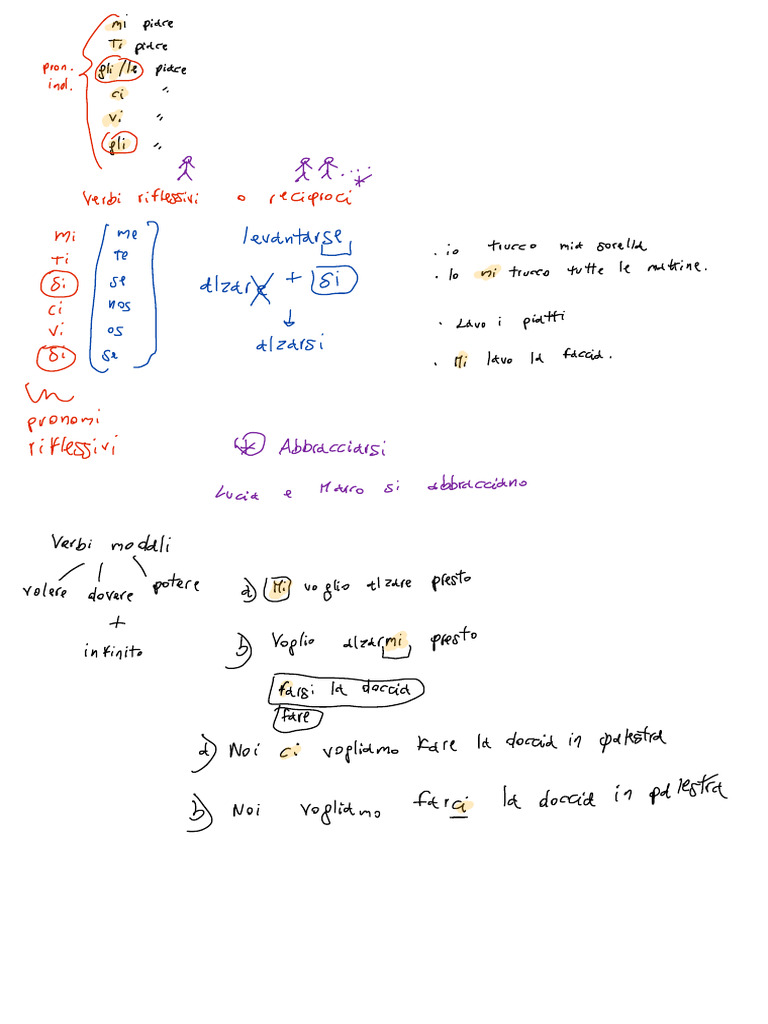 mi piace
Ti piace
pron. ind.
gli/le piace
ci "
vi "
gli "
Verbi riflessivi o reciproci
mi me
Ti Te
si se
ci nos
vi os
si se
pronomi
riflessivi
levantarse
alzare + si
alzarsi
. io trucco mia sorella
. Io mi trucco tutte le mattine.
. Lavo i piatti
. Mi lavo la faccia.
* Abbracciarsi
Lucia e Marco si abbracciano
Verbi modali
volere dovere potere
+
infinito
a) Mi voglio alzare presto
b) Voglio alzarmi presto
farsi la doccia
fare
a) Noi ci vogliamo fare la doccia in palestra
b) Noi vogliamo farci la doccia in palestra